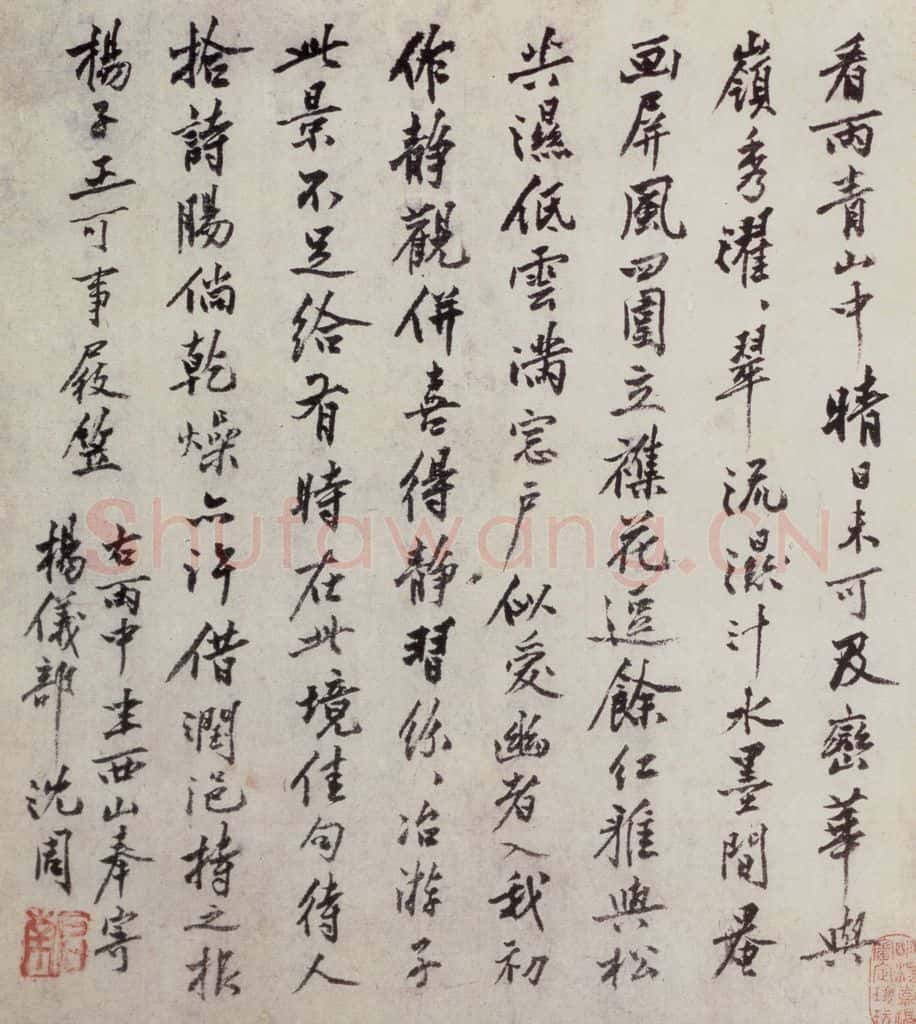 看雨青山中晴日未可及巒華與
嶺秀濯、翠流濕汁水墨間暴
画屏風四圍立襍花逗餘红雅與松
共濕低雲滿窓戶似愛幽者入我初
作静觀併喜得静習你、冶游子
此景不足给有時在此境佳句待人
拾詩腸倘乾燥亦许借潤浥持之报
楊子正可事屐笠
右雨中坐西山奉寄
楊儀部 沈周
Shufawang.CN